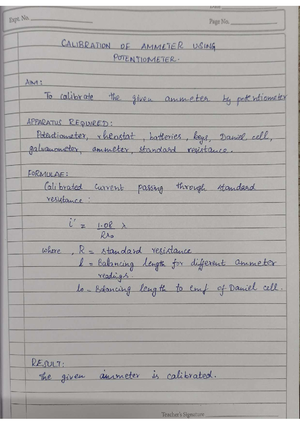 Expt. No.
Page No.
CALIBRATION OF AMMETER USING
POTENTIOMETER.
AIM:
To calibrate the given ammeter by potentiometer
APPARATUS REQUIRED:
Potentiometer, rheostat, batteries, keys, Daniel cell,
galvanometer, ammeter, standard resistance.
FORMULAE:
Calibrated current passing through standard
resistance:
i' = 1.08 l
Rl₀
where, R = standard resistance
l = Balancing length for different ammeter
readings.
l₀ = Balancing length to emf of Daniel cell.
RESULT:
The given ammeter is calibrated.
Teacher's Signature